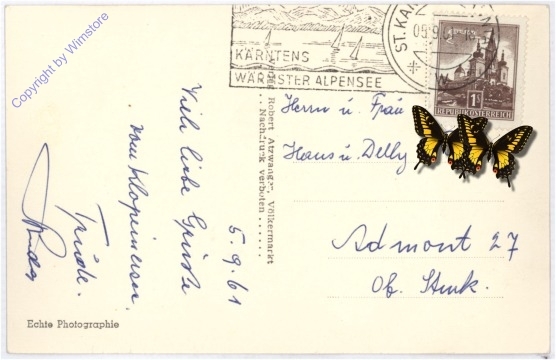 Copyright by Wimstore
KÄRNTENS
WÄRMSTER ALPENSEE
ST. KAN
05.9.
1 S
REPUBLIK ÖSTERREICH
Herrn u. Frau
Hans u. Delly
Admont 27
Ob. Stmk.
Robert Atzwanger, Völkermarkt
Nachdruck verboten
5.9.61
Viele liebe Grüße
vom Klopeinersee.
Trude.
Echte Photographie